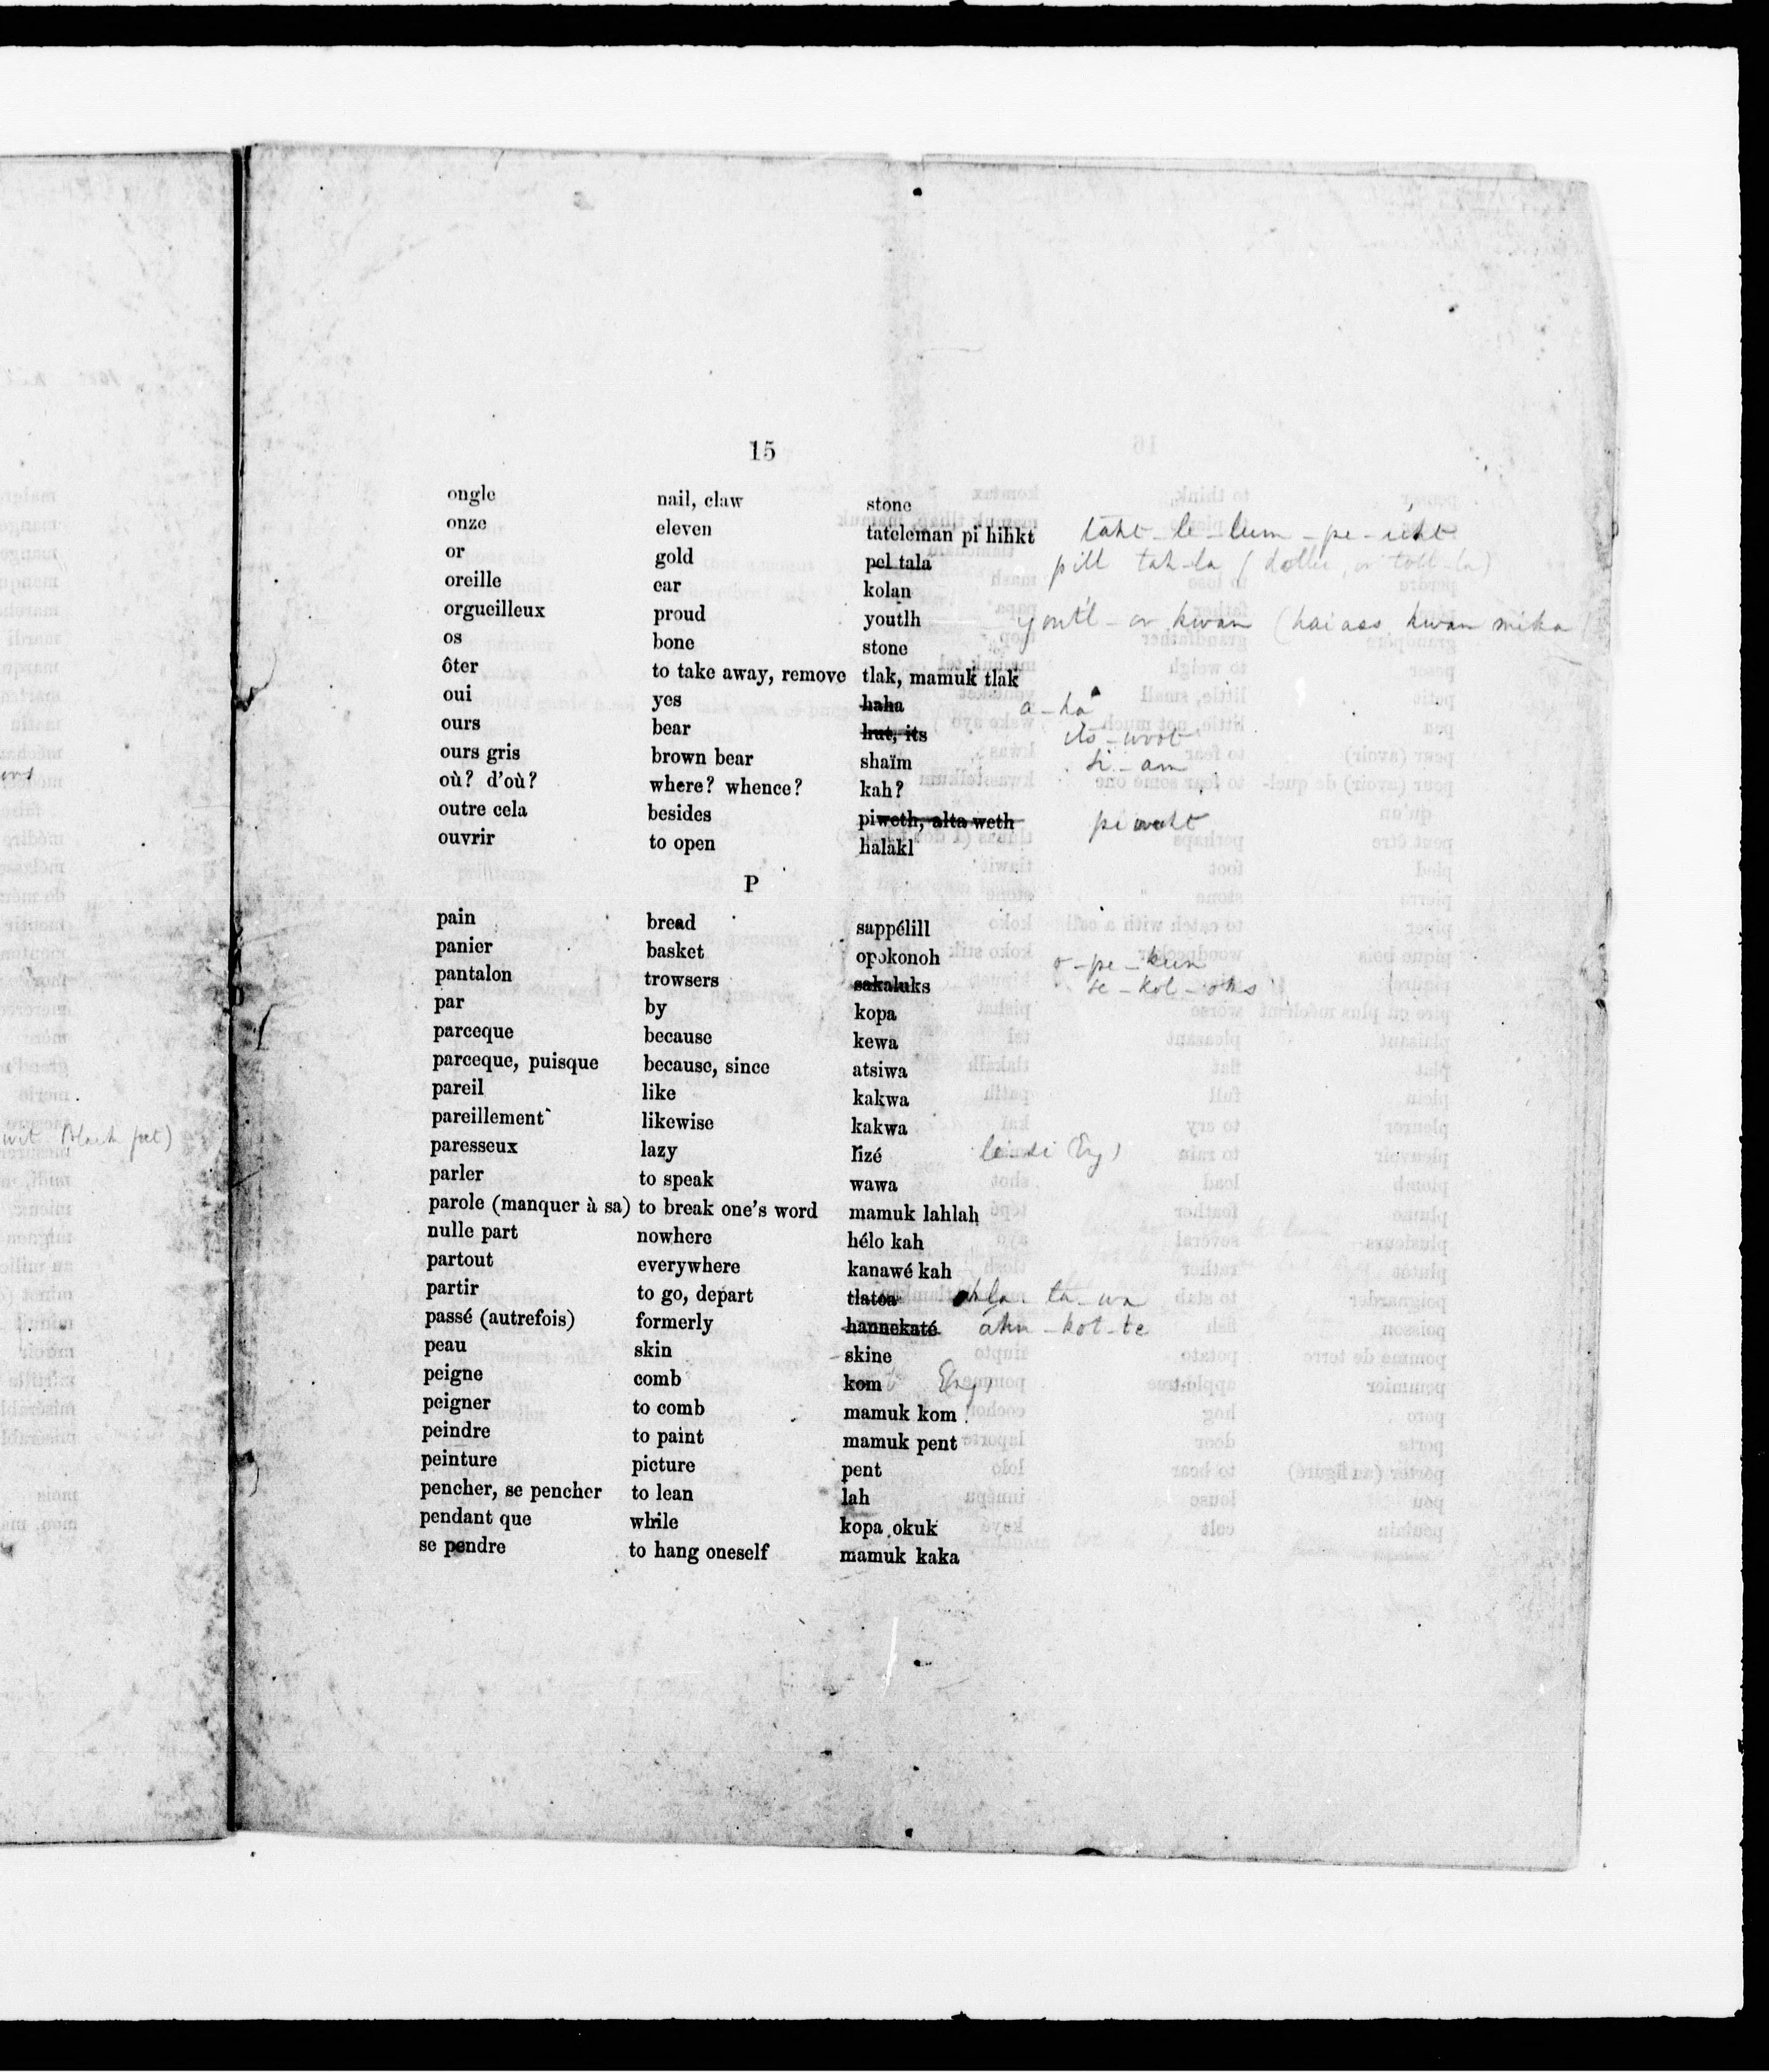 15
ongle nail, claw stone
onze eleven tateleman pi hihkt taht-le-lum-pe-icht
or gold pel tala pill tah-la (dollar, or toll-la)
oreille ear kolan
orgueilleux proud youtlh youtl-or kwan (haiass kwan mika)
os bone stone
ôter to take away, remove tlak, mamuk tlak
oui yes haha a-ha
ours bear hut, its its-woot
ours gris brown bear shaïm si-am
où? d'où? where? whence? kah?
outre cela besides piweth, alta weth pe weht
ouvrir to open halakl
P
pain bread sappélill
panier basket opokonoh o-pe-kun
pantalon trowsers sakaluks se-kol-oks
par by kopa
parceque because kewa
parceque, puisque because, since atsiwa
pareil like kakwa
pareillement likewise kakwa
paresseux lazy lizé (Eng)
parler to speak wawa
parole (manquer à sa) to break one's word mamuk lahlah
nulle part nowhere hélo kah
partout everywhere kanawé kah
partir to go, depart tlatoa kla-ta-wa
passé (autrefois) formerly hannekaté ahn-kot-te
peau skin skine
peigne comb kom Eng
peigner to comb mamuk kom
peindre to paint mamuk pent
peinture picture pent
pencher, se pencher to lean lah
pendant que while kopa okuk
se pendre to hang oneself mamuk kaka